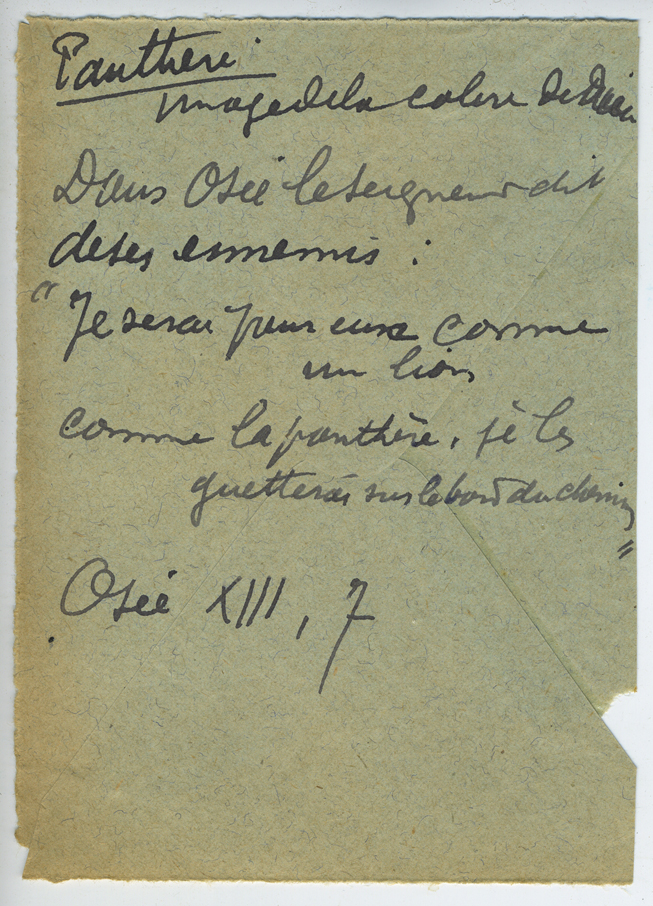 Panthère :
image de la colère de Dieu
Dans Osée le seigneur dit
de ses ennemis :
" Je serai pour eux comme
un lion
comme la panthère, je les
guetterai sur le bord du chemin
"
Osée XIII, 7